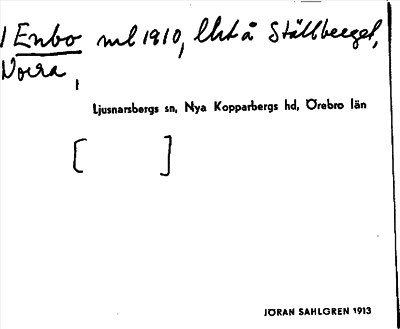 Enbo ml 1910, Uht å Ställberget,
Norra,
Ljusnarsbergs sn, Nya Kopparbergs hd, Örebro län
[ ]
JÖRAN SAHLGREN 1913